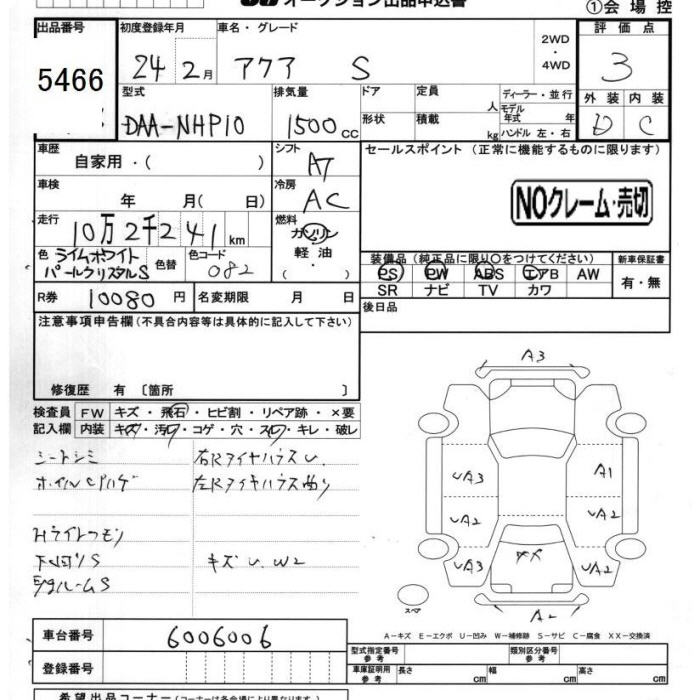 オークション出品申込書
①会場控
出品番号 初度登録年月 車名・グレード 2WD ・ 4WD 評価点
5466 24 2月 アクア S 3
型式 排気量 ドア 定員 人 ディーラー・並行 外装 内装
DAA-NHP10 1500cc 形状 積載 kg モデル年式 年 ハンドル 左・右 D C
車歴 自家用・( ) シフト AT セールスポイント (正常に機能するものに限ります)
車検 年 月( 日) 冷房 AC NOクレーム・売切
走行 10万2千241km 燃料 ガソリン 軽油 ( ・ )
色 ライムホワイトパールクリスタルS 色替 色コード 082
装備品 (純正品に限り○をつけてください) 新車保証書
PS PW ABS エアB AW 有・無
SR ナビ TV カワ
R券 10080円 名変期限 月 日 後日品
注意事項申告欄 (不具合内容等は具体的に記入して下さい)
修復歴 有 〔箇所 〕
検査員記入欄 FW キズ・飛石・ヒビ割・リペア跡・×要
内装 キズ・汚れ・コゲ・穴・スレ・キレ・破レ
シートシミ 右RタイヤハウスU.
ホイルCPハゲ 左Rタイヤハウス曲り
Hライトクモリ
下回りS キズ U. W2
E/gルームS
A3
UA3 A1
UA2 UA2
UA3 UA2
スペア
A2
A-キズ E-エクボ U-凹み W-補修跡 S-サビ C-腐食 XX-交換済
車台番号 6006006
型式指定番号 参考 類別区分番号 参考
登録番号 車庫証明用 参考 長さ cm 幅 cm 高さ cm
希望出品コーナー (コーナーは各会場により異なります)